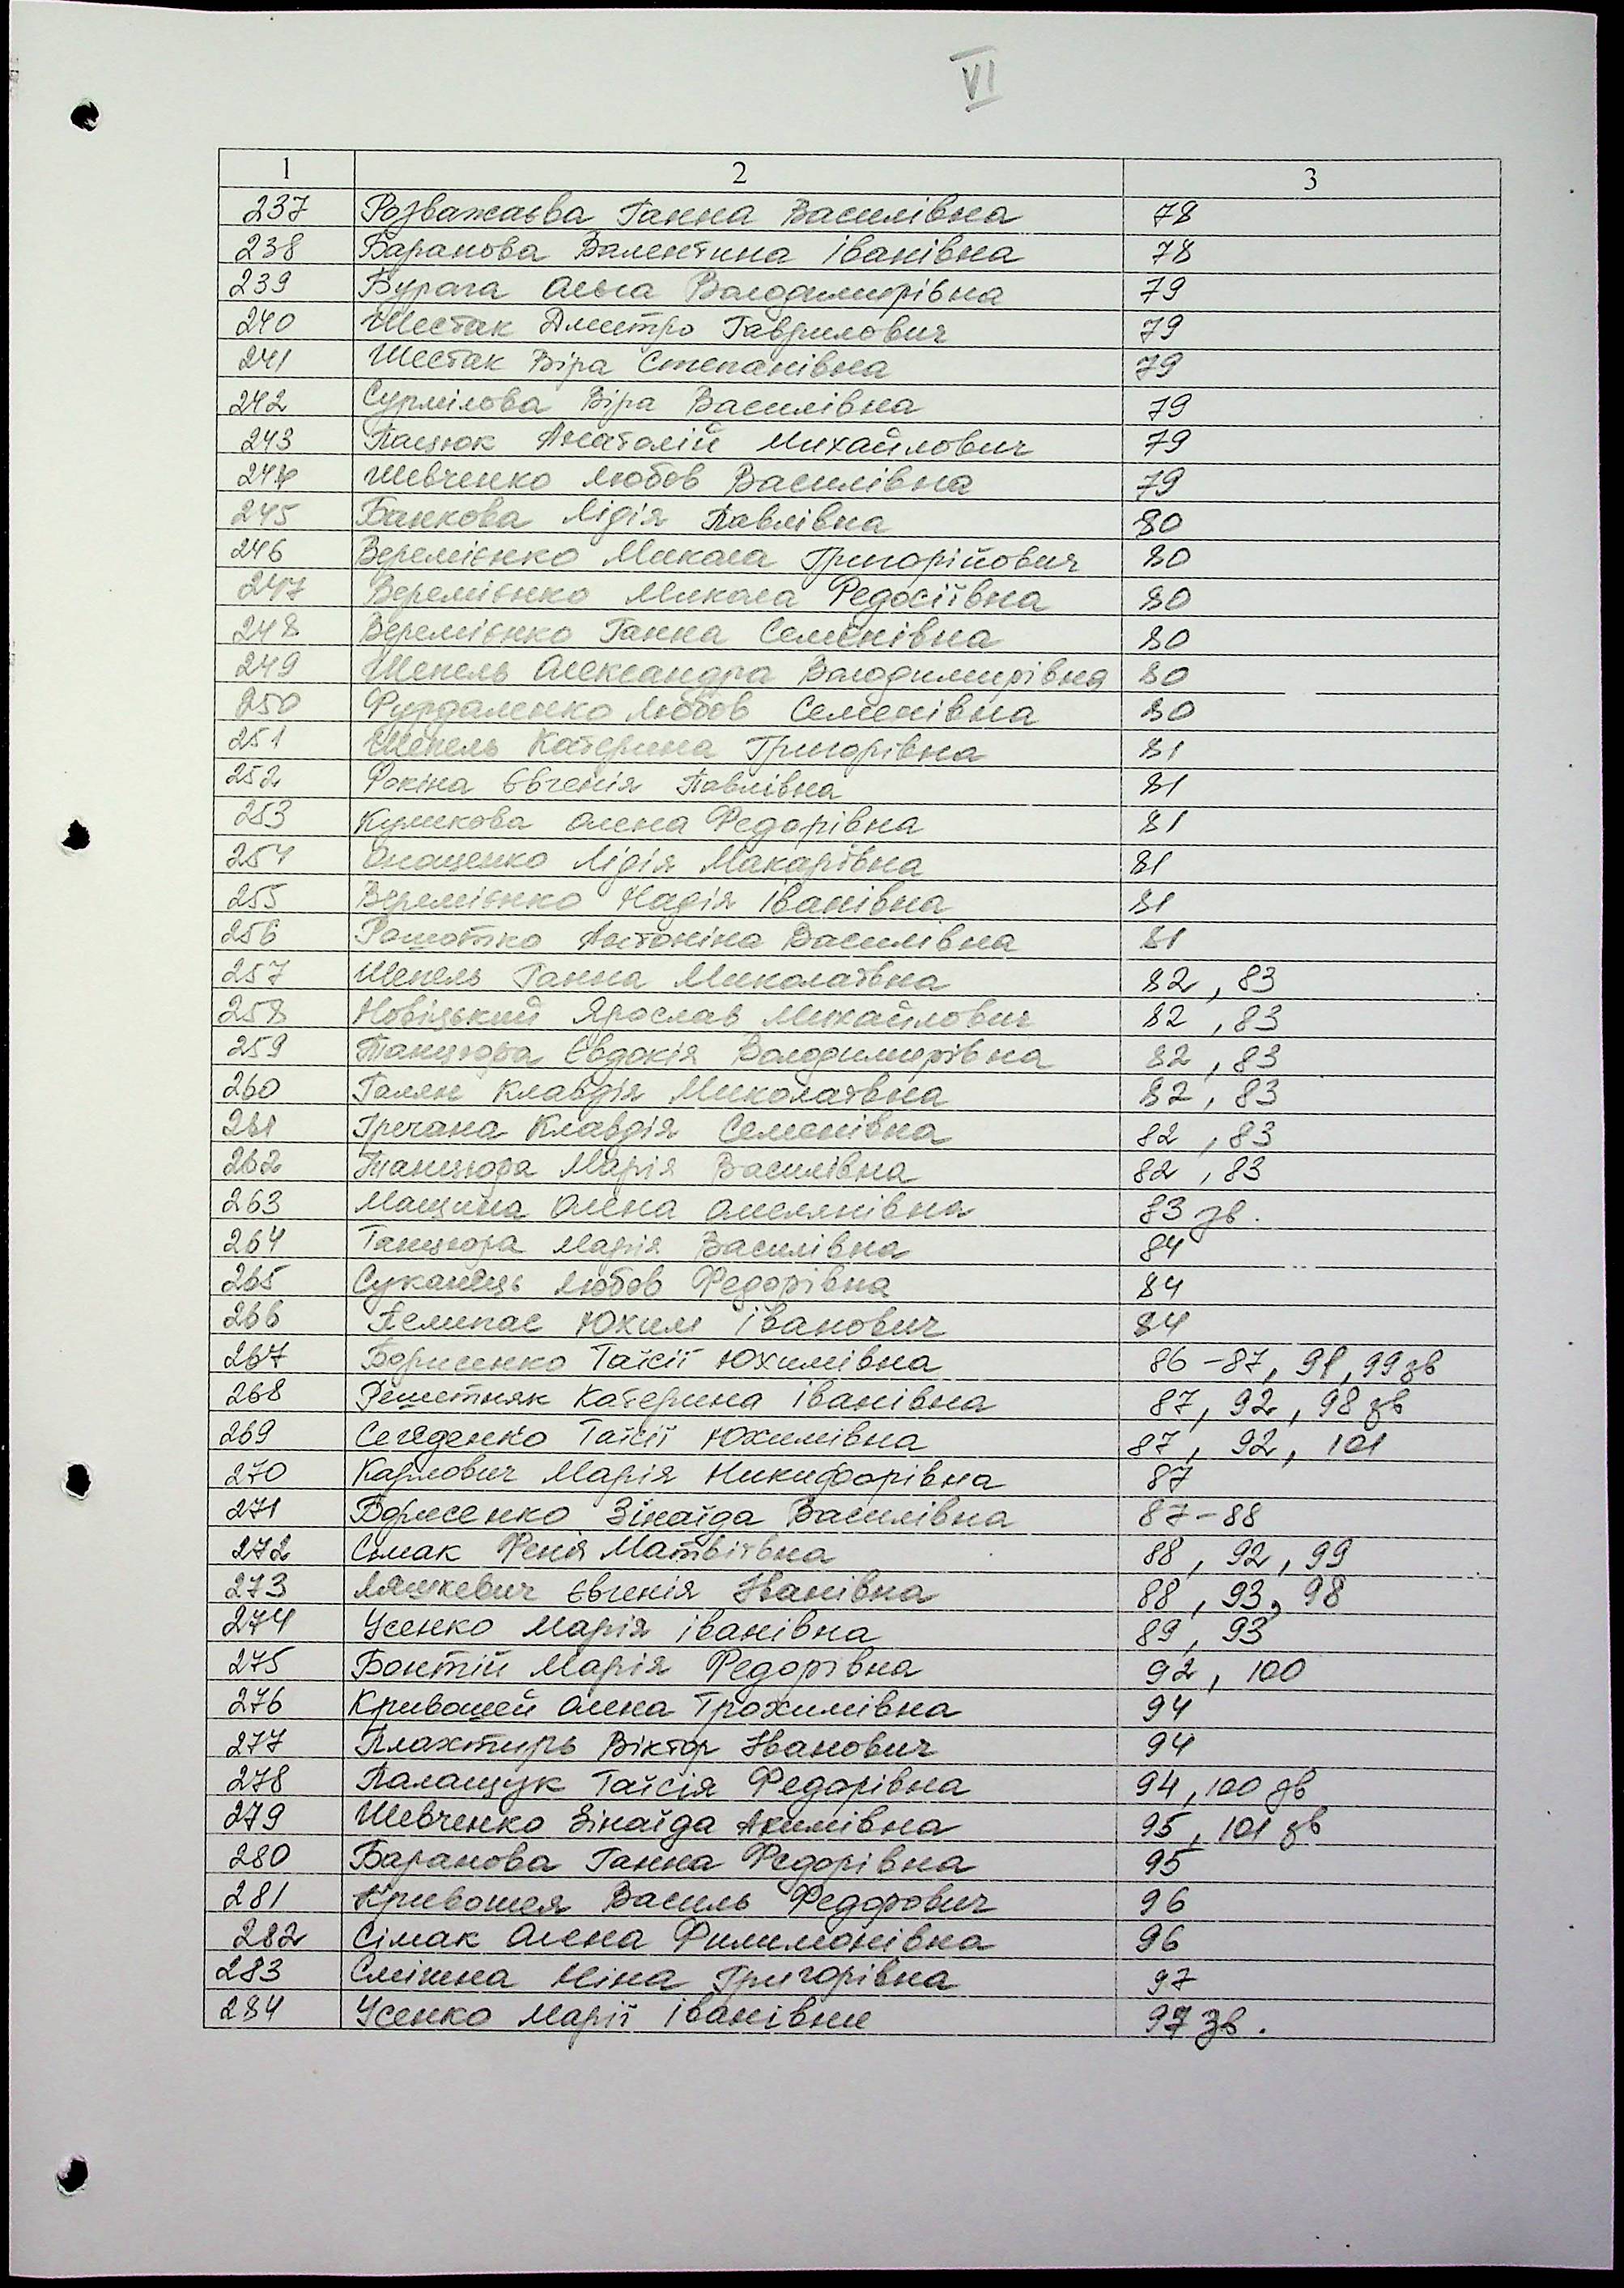 VI
1 2 3
237 Розважаєва Ганна Василівна 78
238 Баранова Валентина Іванівна 78
239 Бурага Ольга Володимирівна 79
240 Шестак Дмитро Гаврилович 79
241 Шестак Віра Степанівна 79
242 Сурмілова Віра Василівна 79
243 Пацюк Анатолій Михайлович 79
244 Шевченко Любов Василівна 79
245 Банкова Лідія Павлівна 80
246 Веремієнко Микола Григорійович 80
247 Веремієнко Микола Федосіївна 80
248 Веремієнко Ганна Семенівна 80
249 Шепель Олександра Володимирівна 80
250 Фурдаленко Любов Семенівна 80
251 Шепель Катерина Григорівна 81
252 Фокіна Євгенія Павлівна 81
253 Куликова Олена Федорівна 81
254 Онащенко Лідія Макарівна 81
255 Веремієнко Надія Іванівна 81
256 Антоніна Василівна 81
257 Шепель Ганна Миколаївна 82, 83
258 Новіцький Ярослав Михайлович 82, 83
259 Танцюра Євдокія Володимирівна 82, 83
260 Галян Клавдія Миколаївна 82, 83
261 Гречана Клавдія Семенівна 82, 83
262 Танцюра Марія Василівна 82, 83
263 Мащина Олена Омелянівна 83 зв.
264 Танцюра Марія Василівна 84
265 Любов Федорівна 84
266 Юхим Іванович 84
267 Борисенко Таїсії Юхимівна 86-87, 91, 99 зв
268 Решетняк Катерина Іванівна 87, 92, 98 зв
269 Таїсії Юхимівна 87, 92, 101
270 Карлович Марія Никифорівна 87
271 Борисенко Зінаїда Василівна 87-88
272 Сьмак Феня Матвіївна 88, 92, 99
273 Ляшкевич Євгенія Іванівна 88, 93, 98
274 Усенко Марія Іванівна 89, 93
275 Бонтій Марія Федорівна 92, 100
276 Кривошей Олена Трохимівна 94
277 Плахтирь Віктор Іванович 94
278 Палащук Таїсія Федорівна 94, 100 зв
279 Шевченко Зінаїда Акимівна 95, 101 зв
280 Баранова Ганна Федорівна 95
281 Кривошея Василь Федорович 96
282 Сімак Олена Филимонівна 96
283 Смішна Ніна Григорівна 97
284 Усенко Марії Іванівни 97 зв.